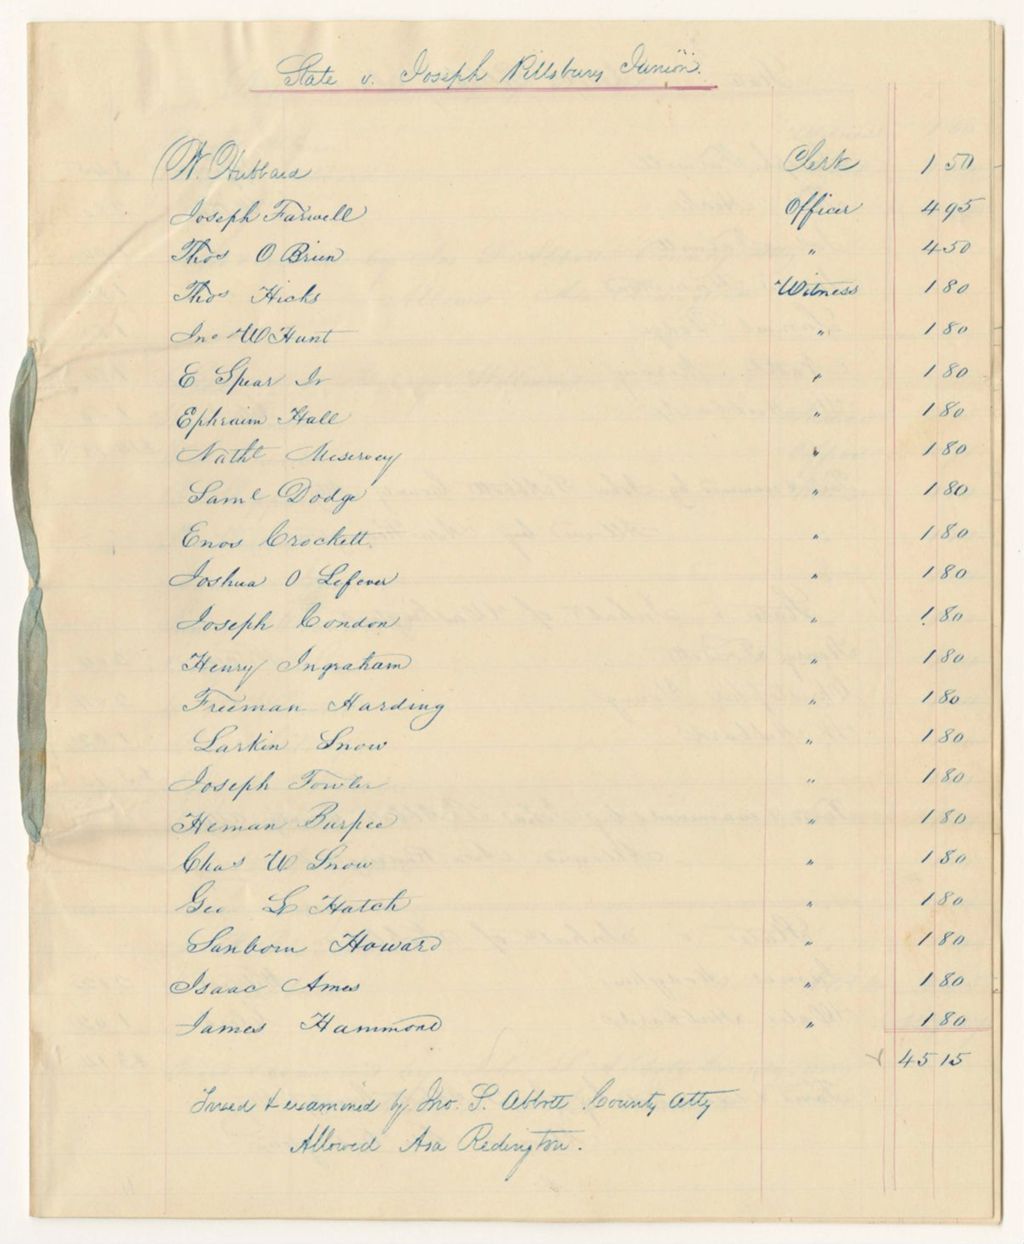 State v. Joseph Pillsbury Junior.
W. Hubbard Clerk 1 50
Joseph Farwell Officer 4 95
Thos O Brien " 4 50
Thos Hicks Witness 1 80
Jno W Hunt " 1 80
E Spear Jr " 1 80
Ephraim Hall " 1 80
Nathl Meservey " 1 80
Saml Dodge " 1 80
Enos Crockett. " 1 80
Joshua O Lefever " 1 80
Joseph Condon " 1 80
Henry Ingraham " 1 80
Freeman Harding " 1 80
Larkin Snow " 1 80
Joseph Fowler " 1 80
Heman Burpee " 1 80
Chas W Snow " 1 80
Geo L Hatch " 1 80
Sanborn Howard " 1 80
Isaac Ames " 1 80
James Hammond " 1 80
45 15
Taxed & examined by Jno. S. Abbott County Atty
Allowed Asa Redington.